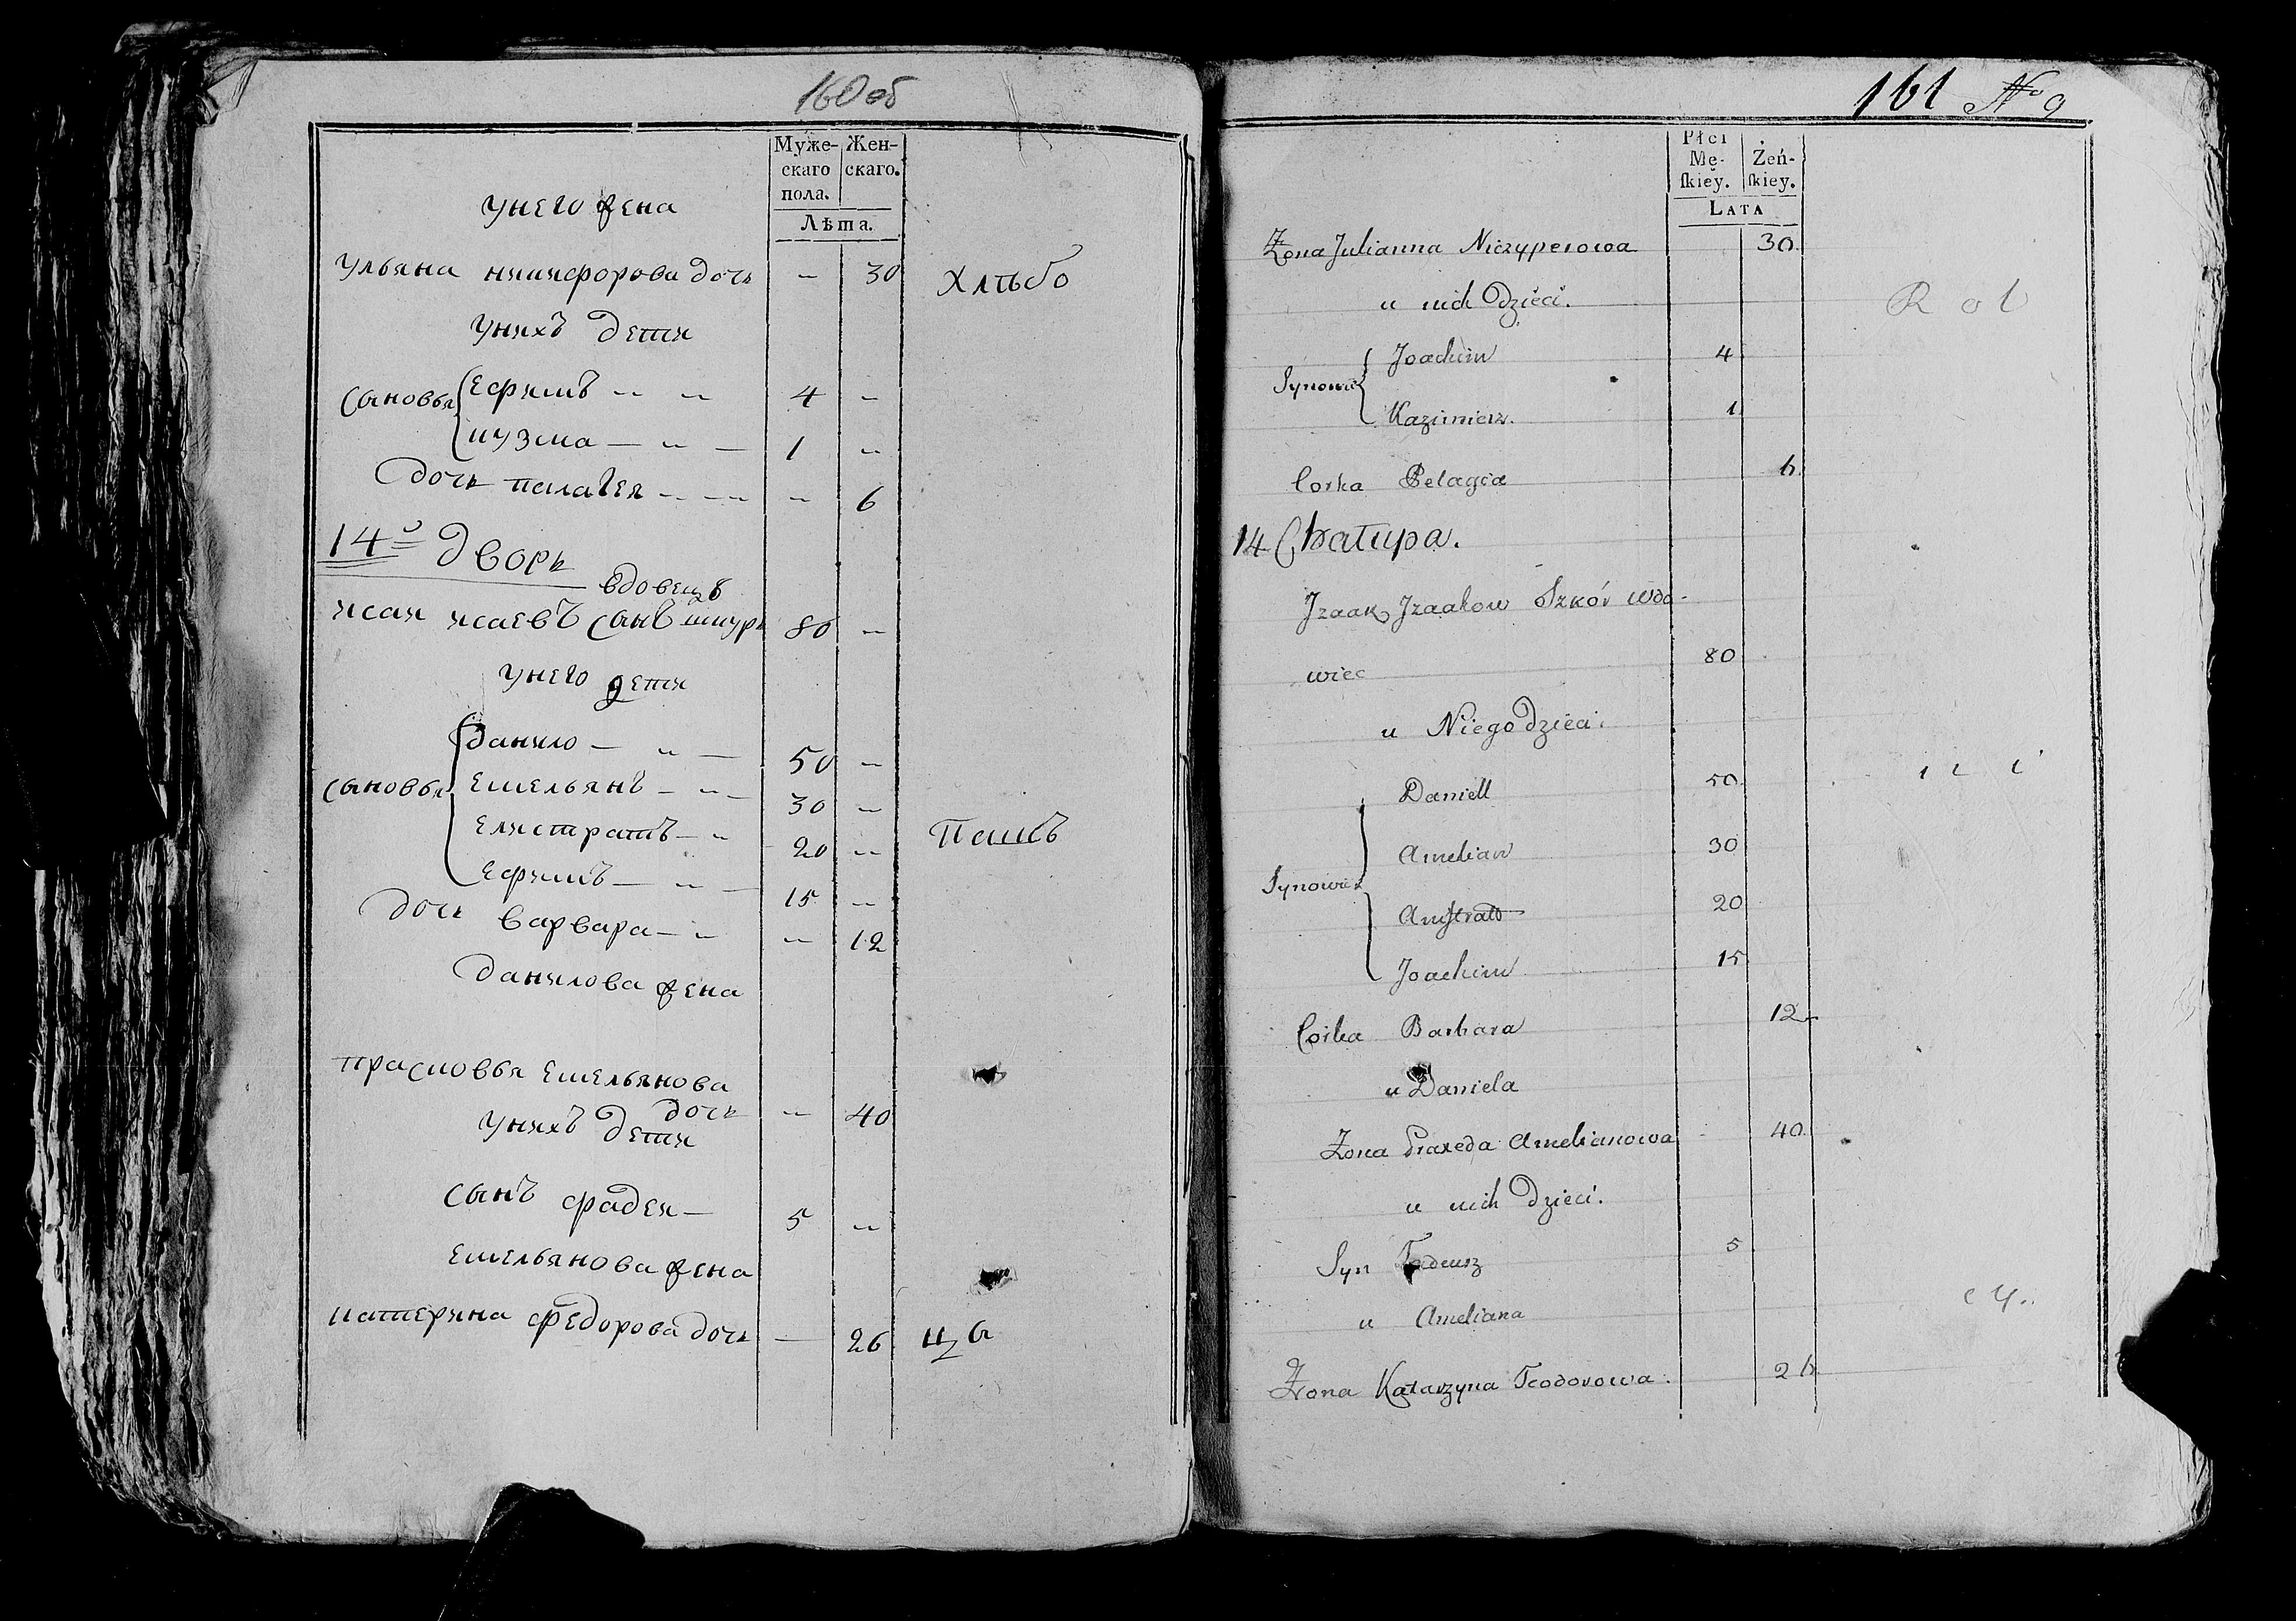 160 об
Муже-
скаго
пола.
Жен-
скаго.
Лѣта.
унего жена
Ульяна никифорова дочь – 30 Хлѣбо
унихъ дети
сыновья Ефимъ 4 –
кузма 1 –
дочь пелагея – 6
14й дворъ
вдовецъ
исаи исаевъ сынъ шкуръ 80 –
унего дети
данило 50 –
сыновья емельянъ 30 –
елистратъ 20 – Пашъ
ефимъ 15 –
дочь варвара – 12
данилова жена
прасковья емельянова
дочь – 40
унихъ дети
сынъ фадеи 5 –
емельянова жена
катерина федорова дочь – 26 цы
161 No 9
Płci
Mę-
ſkiey.
Żeń-
ſkiey.
Lata
Żona Julianna Niczyperowa 30
u nich Dzieci.
Rol
Joachim 4
Synowie
Kazimierz. 1
Corka Pelagia 6
14 Chatupa.
Jzaak Jzaakow Szkór wdo-
wiec 80
u Niego dzieci.
Daniell 50
Amelian 30
Synowie
Anistratt 20
Joachim 15
Corka Barbara 12
u Daniela
Żona Praxeda Amelianowa 40
u nich Dzieci.
Syn Tadeusz 5
u Ameliana
Żona Katarzyna Teodorowa. 26